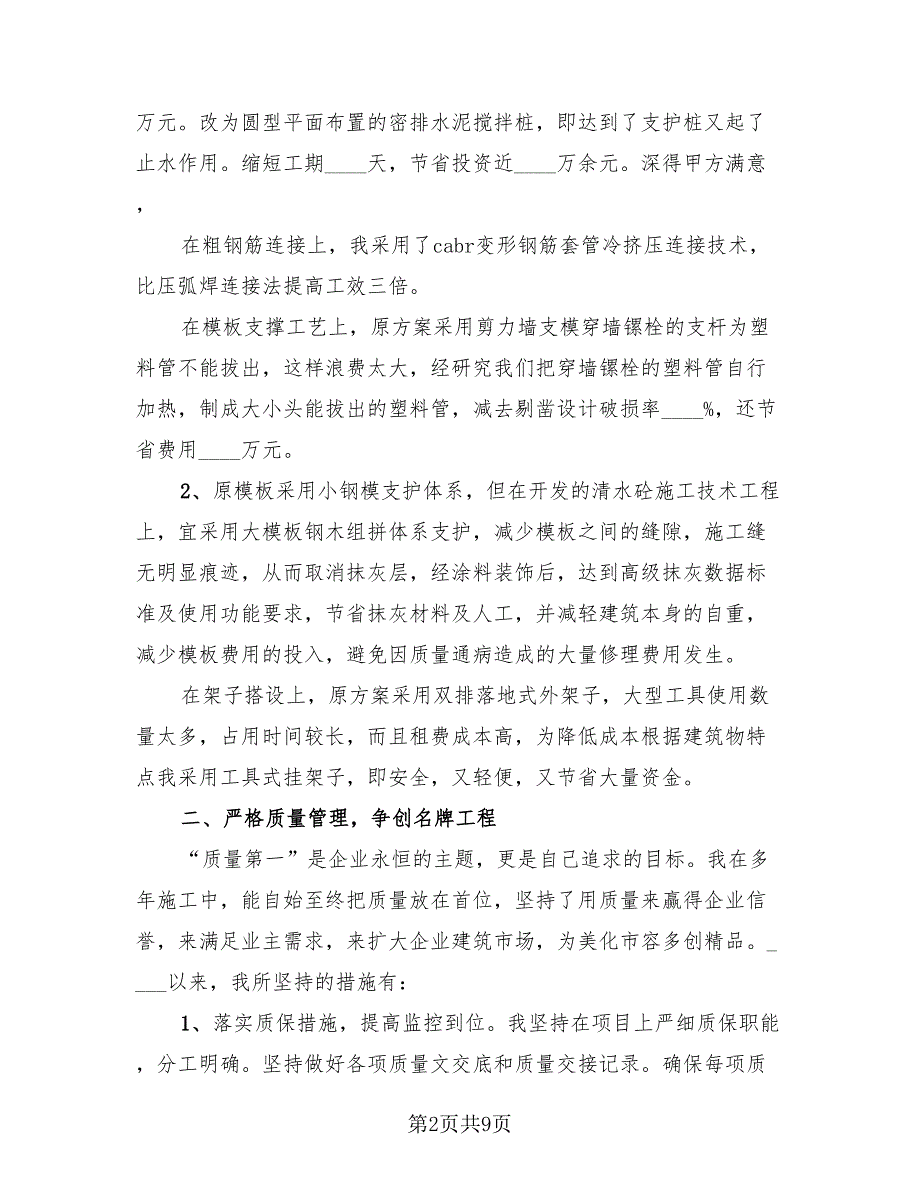 万元。改为圆型平面布置的密排水泥搅拌桩，即达到了支护桩又起了
止水作用。缩短工期____天，节省投资近____万余元。深得甲方满意
，
在粗钢筋连接上，我采用了cabr变形钢筋套管冷挤压连接技术，
比压弧焊连接法提高工效三倍。
在模板支撑工艺上，原方案采用剪力墙支模穿墙镙栓的支杆为塑
料管不能拔出，这样浪费太大，经研究我们把穿墙镙栓的塑料管自行
加热，制成大小头能拔出的塑料管，减去剔凿设计破损率____%，还节
省费用____万元。
2、原模板采用小钢模支护体系，但在开发的清水砼施工技术工程
上，宜采用大模板钢木组拼体系支护，减少模板之间的缝隙，施工缝
无明显痕迹，从而取消抹灰层，经涂料装饰后，达到高级抹灰数据标
准及使用功能要求，节省抹灰材料及人工，并减轻建筑本身的自重，
减少模板费用的投入，避免因质量通病造成的大量修理费用发生。
在架子搭设上，原方案采用双排落地式外架子，大型工具使用数
量太多，占用时间较长，而且租费成本高，为降低成本根据建筑物特
点我采用工具式挂架子，即安全，又轻便，又节省大量资金。
二、严格质量管理，争创名牌工程
“质量第一”是企业永恒的主题，更是自己追求的目标。我在多
年施工中，能自始至终把质量放在首位，坚持了用质量来赢得企业信
誉，来满足业主需求，来扩大企业建筑市场，为美化市容多创精品。_
___以来，我所坚持的措施有：
1、落实质保措施，提高监控到位。我坚持在项目上严细质保职能
，分工明确。坚持做好各项质量文交底和质量交接记录。确保每项质
第2页共9页